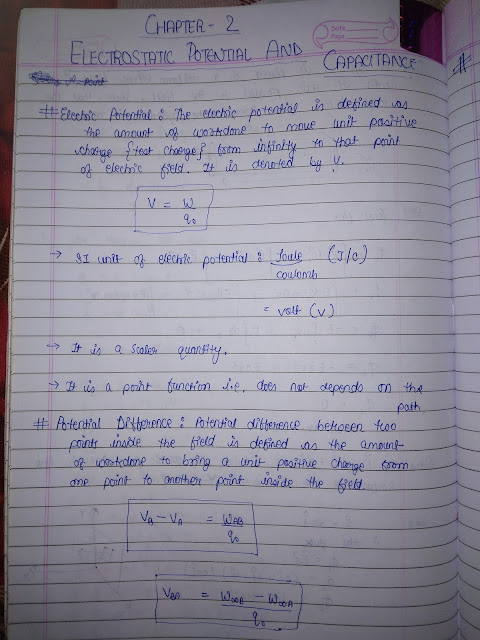 CHAPTER - 2
Date
Page
ELECTROSTATIC POTENTIAL AND CAPACITANCE
#
# Electric Potential : The electric potential is defined as
the amount of workdone to move unit positive
charge {test charge} from infinity to that point
of electric field. It is denoted by V.
V = W
q₀
→ SI unit of electric potential : Joule (J/C)
coulomb
= volt (V)
→ It is a scaler quantity.
→ It is a point function i.e. does not depends on the
path
# Potential Difference : Potential difference between two
points inside the field is defined as the amount
of workdone to bring a unit positive charge from
one point to another point inside the field.
V_B - V_A = W_AB
q₀
V_BA = W_∞B - W_∞A
q₀